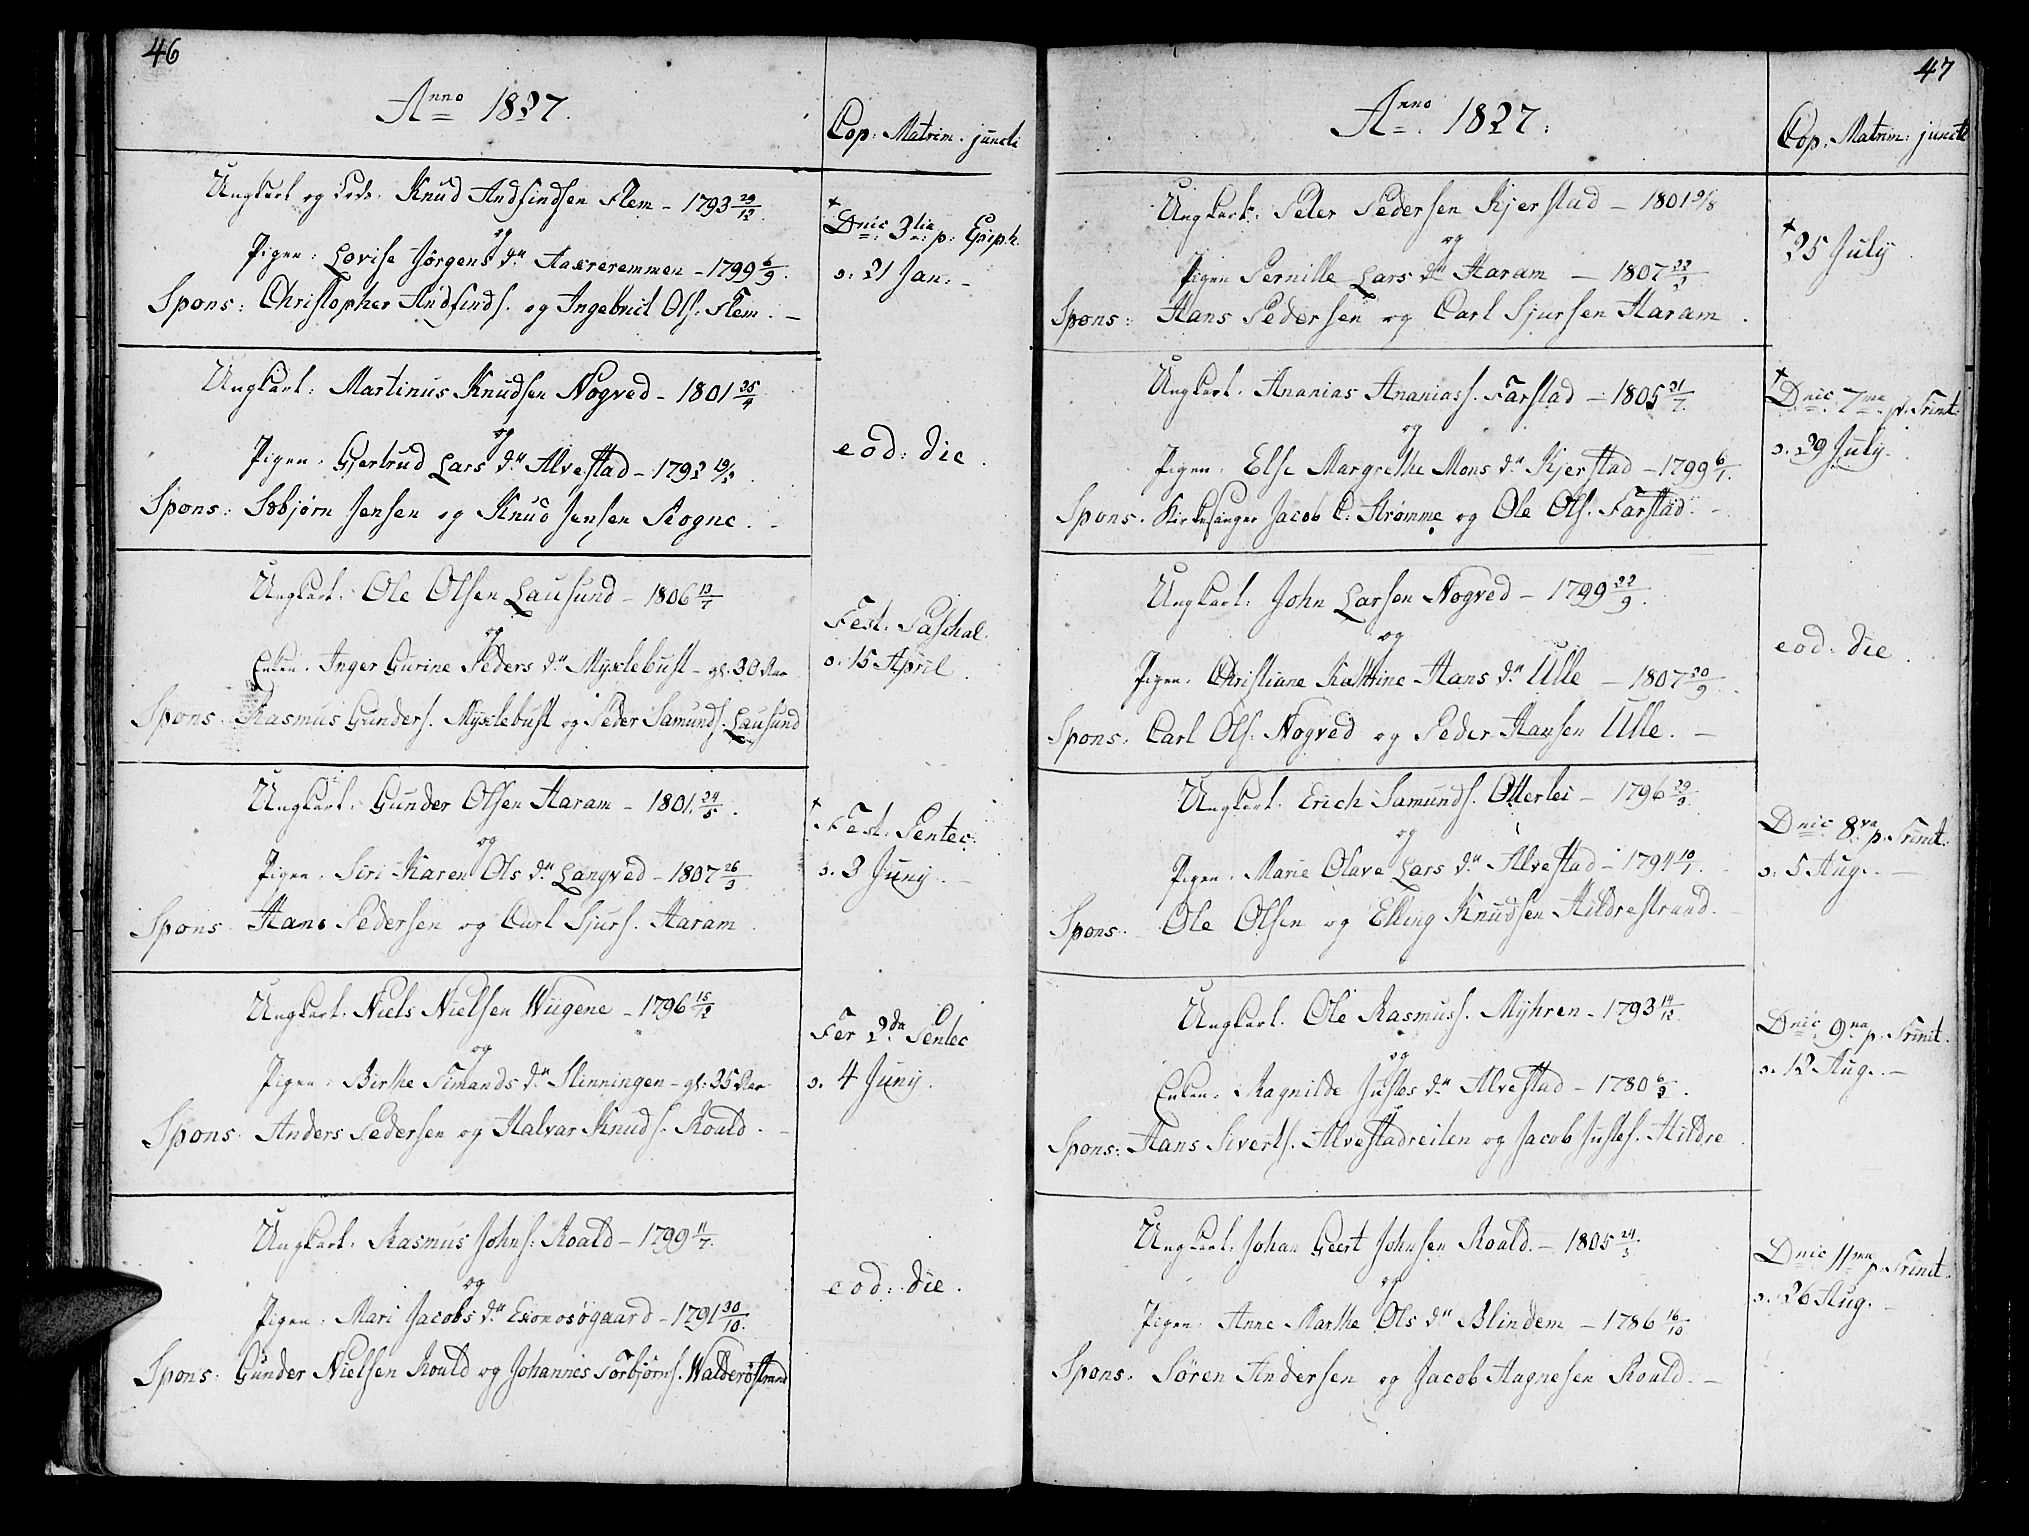 46
Anno 1827.
Cop: Matrim. juncti
Ungkarl og Sold: Knud Andfindsen Flem - 1793 29/12.
og
Pigen: Lovise Jørgens dr Aakreremmen - 1799 6/9.
Spons: Christopher Andfinds. og Ingebrict Ols. Flem. -
+
Dnic 3tia p: Epiph.
d: 21 Jan: -
Ungkarl: Martinus Knudsen Nogved - 1801 25/4
og
Pigen: Gjertrud Lars dr Alvestad - 1792 19/2.
Spons: Esbjørn Jensen og Knud Jensen Rogne. -
eod: die.
Ungkarl: Ole Olsen Lausund - 1806 13/7
og
Enken. Inger Gurine Peders dr Myklebust - gl: 30 Aar
Spons. Rasmus Gunders. Myklebust og Peder Samunds. Lausund
Fest: Paschal.
d: 15 April.
Ungkarl. Gunder Olsen Haram - 1801. 24/5.
og
Pigen. Siri Karen Ols dr Langved - 1807 26/3
Spons. Hans Pedersen og Carl Sjurs. Haram.
+
Fest: Pentec:
d. 3 Junij. -
Ungkarl. Niels Nielsen Wiigene - 1796 15/12
og
Pigen. Birthe Simands dr Slinningen - gl: 35 Aar
Spons. Anders Pedersen og Halvar Knuds. Roald. -
Fer 2da Pentec
d. 4 Junij.
Ungkarl. Rasmus Johns: Roald - 1799 11/7.
og
Pigen: Mari Jacobs dr Exonosøgaard - 1791 30/10.
Spons: Gunder Nielsen Roald og Johannes Torbjørns. Walderøstrand
eod: die.
47
Anno 1827.
Cop: Matrim: juncti
Ungkarl: Peter Pedersen Kjerstad - 1801 9/8
og
Pigen Pernille Lars dr Haram - 1807 22/3
Spons: Hans Pedersen og Carl Sjursen Haram.
+
25 July.
Ungkarl. Ananias Ananiass. Farstad - 1805 21/7.
og
Pigen: Else Margrethe Mons dr Kjerstad - 1799 6/7.
Spons. Kirkesanger Jacob C. Strømme og Ole Ols. Farstad. -
+
Dnic 7ma p. Trinit.
d. 29 July.
Ungkarl: John Larsen Nogved - 1799 22/9.
og
Pigen. Christiane Kathrine Hans dr Ulle - 1807 20/9.
Spons. Carl Ols. Nogved og Peder Hansen Ulle. -
eod: die.
Ungkarl. Erich Samunds. Otterlei - 1796 29/9.
og
Pigen. Marie Olave Lars dr Alvestad - 1794 10/7.
Spons. Ole Olsen og Elling Knudsen Hildrestrand. -
Dnic 8va p. Trinit.
d. 5 Aug. -
Ungkarl. Ole Rasmuss. Myhren - 1793 14/12.
og
Enken. Ragnilde Justes dr Alvestad - 1780 6/2.
Spons: Hans Siverts. Alvestadreiten og Jacob Justes. Hildre.
Dnic 9na p. Trinit.
d. 12 Aug. -
Ungkarl. Johan Geert Johnsen Roald. - 1805 24/3.
og
Pigen. Anne Marthe Ols dr Blindem - 1786 16/10
Spons. Søren Andersen og Jacob Hagnesen Roald. -
Dnic 11ma p. Trinit.
d. 26 Aug. -